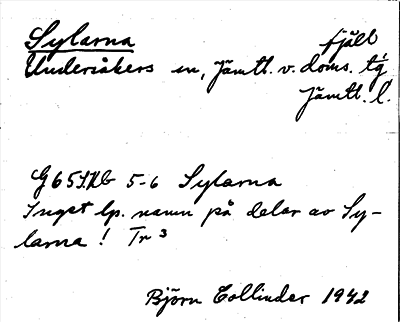 Sylarna fjäll
Undersåkers sn, Jämtl. v. doms. tg
Jämtl. l.
G 65 S.Ub 5-6 Sylarna
Inget lp. namn på delar av Sy-
larna! Tr 3
Björn Collinder 1942